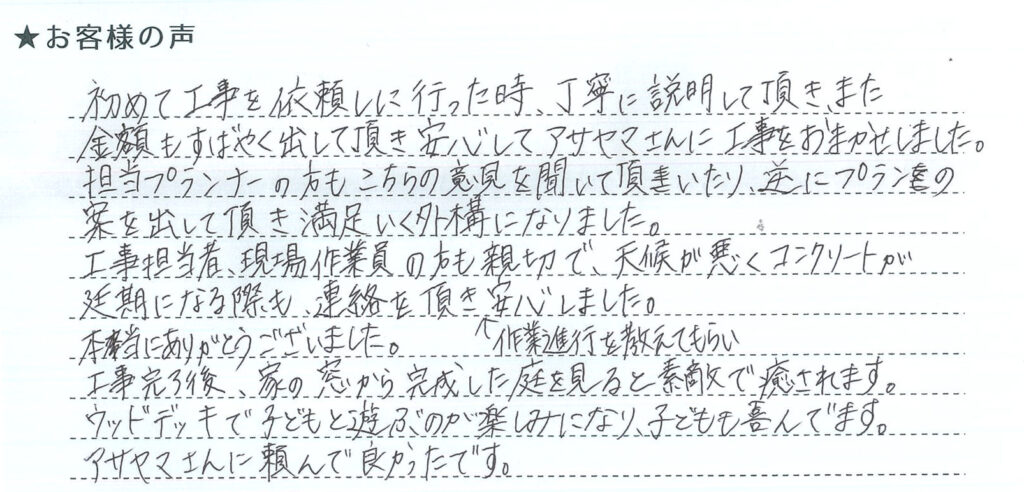 ★お客様の声
初めて工事を依頼しに行った時、丁寧に説明して頂き、また
金額もすばやく出して頂き安心してアサヤマさんに工事をおまかせしました。
担当プランナーの方もこちらの意見を聞いて頂きいたり、逆にプラン等の
案を出して頂き満足いく外構になりました。
工事担当者、現場作業員の方も親切で、天候が悪くコンクリートが
延期になる際も、連絡を頂き安心しました。
本当にありがとうございました。 ↑作業進行を教えてもらい
工事完了後、家の窓から完成した庭を見ると素敵で癒されます。
ウッドデッキで子どもと遊ぶのが楽しみになり、子どもも喜んでます。
アサヤマさんに頼んで良かったです。